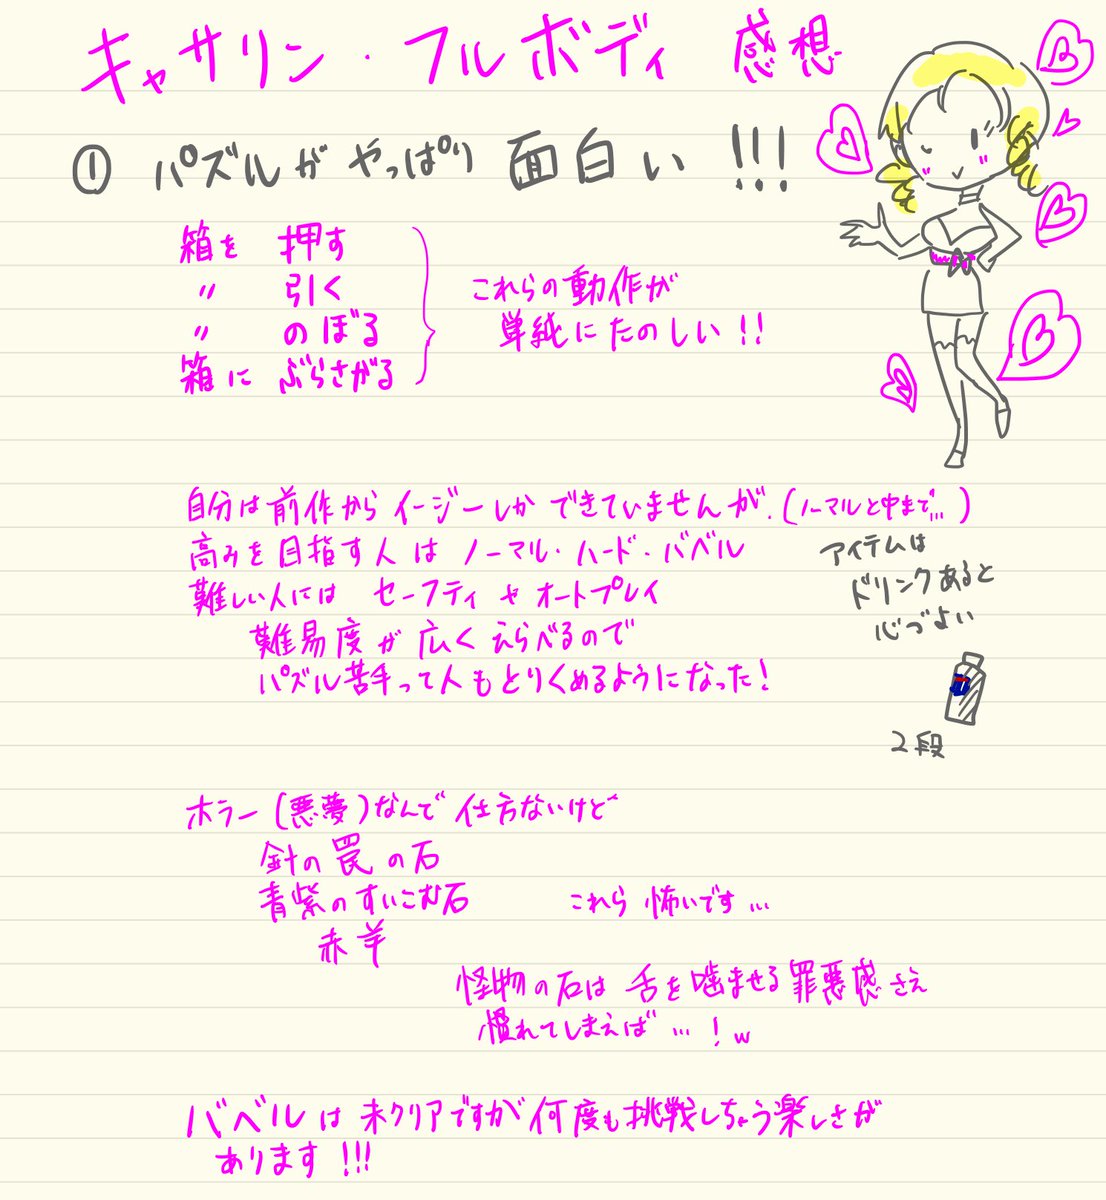 キャサリン・フルボディ 感想
① パズルがやっぱり面白い!!!
箱を 押す
〃 引く
〃 のぼる
箱に ぶらさがる
これらの動作が
単純にたのしい!!
自分は前作からイージーしかできていませんが.(ノーマルと中まで…)
高みを目指す人はノーマル・ハード・バベル
難しい人には セーフティやオートプレイ
難易度が広くえらべるので
パズル苦手って人もとりくめるようになった!
アイテムは
ドリンクあると
心づよい
2段
ホラー(悪夢)なんで仕方ないけど
針の罠の石
青紫のすいこむ石
赤羊
これら怖いです…
怪物の石は舌を噛ませる罪悪感さえ
慣れてしまえば…!w
バベルは未クリアですが何度も挑戦しちゃう楽しさが
あります!!!